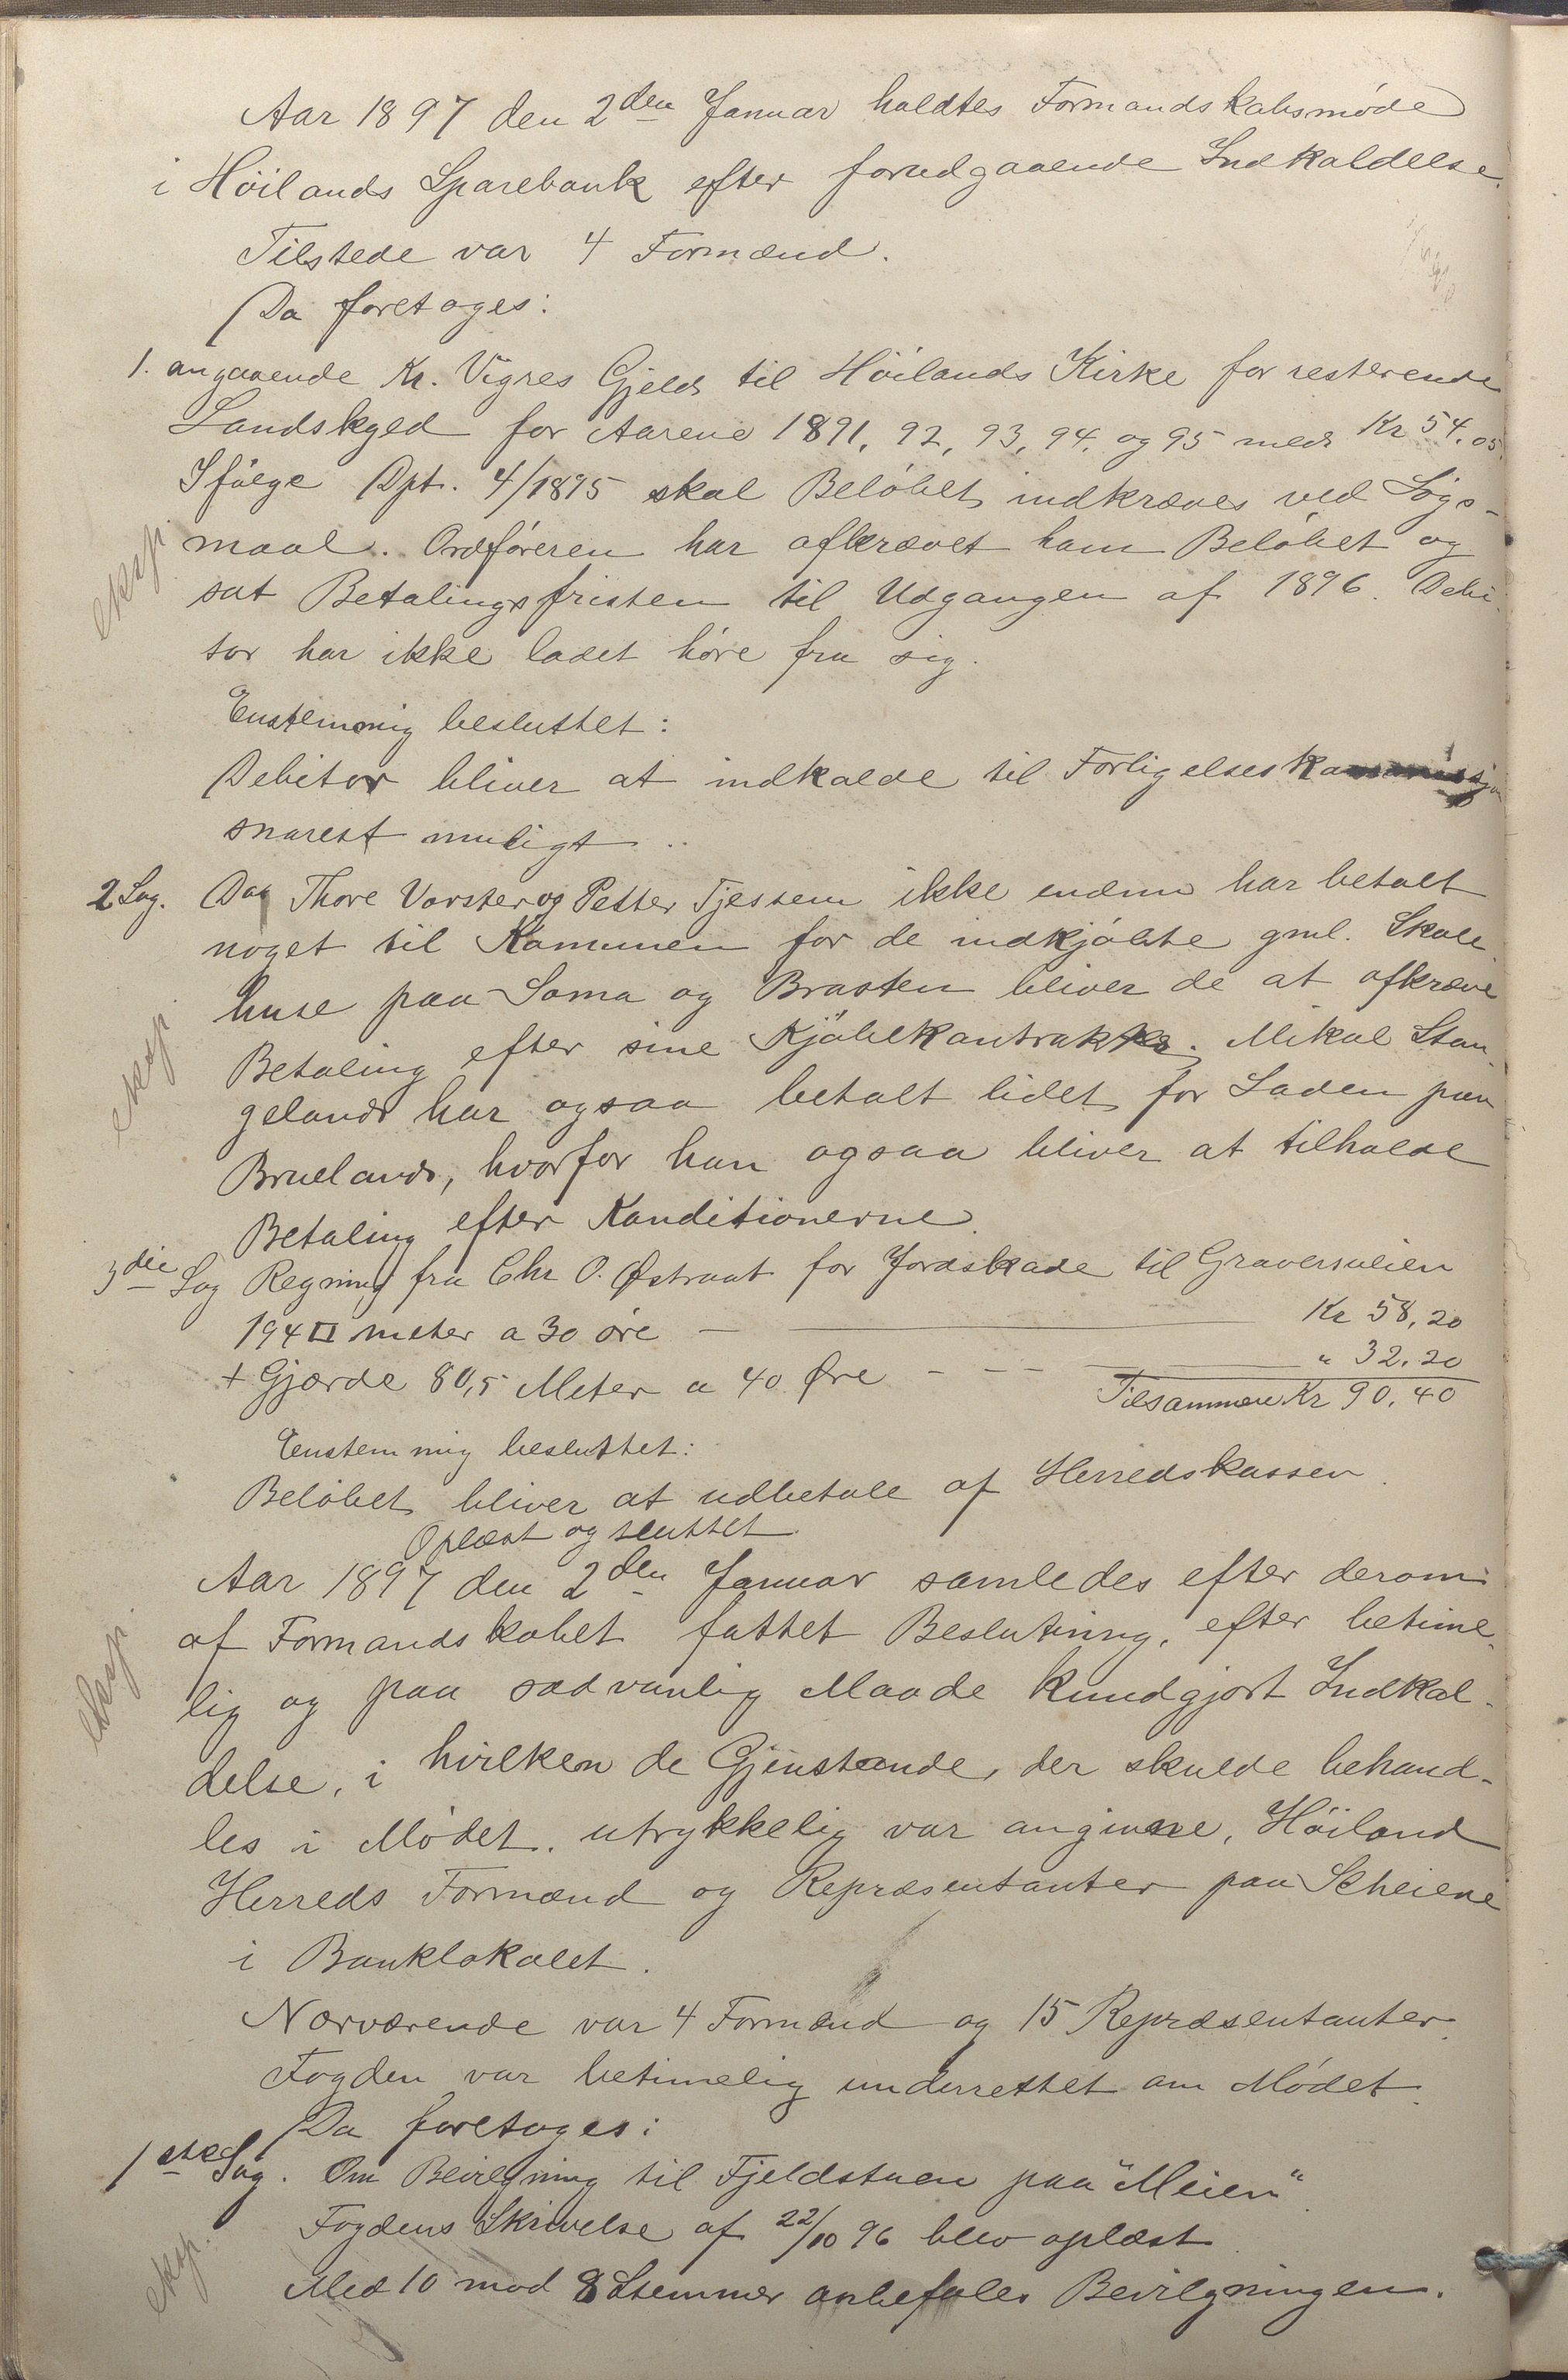 Aar 1897 den 2den Januar holdtes Formandskabsmøde
i Höilands Sparebank efter forudgaaende Indkaldelse.
Tilstede var 4 Formænd.
Da foretoges:
1. angaaende Kr. Vigres Gjeld til Höilands Kirke for resterende
Landskyld for Aarene 1891, 92, 93, 94, og 95 med Kr 54,05.
Ifölge Dpt. 4/1895 skal Belöbet indkræves ved Sögs-
maal. Ordföreren har afkrævet ham Belöbet og
eksp.
sat Betalingsfristen til Udgangen af 1896. Debi-
tor har ikke ladet höre fra sig.
Enstemmig besluttet:
Debitor bliver at indkalde til Forligelseskommissjon
snarest muligt.
2 Sag. Da Thore Vorster og Petter Tjessem ikke endnu har betalt
noget til Kommunen for de indkjöbte gml. Skole-
huse paa Soma og Brasten bliver de at afkræve
Betaling efter sine Kjöbekontrakter. Mikal Stan-
eksp.
geland har ogsaa betalt lidet for Laden paa
Brueland, hvorfor han ogsaa bliver at tilholde
Betaling efter Konditionerne.
3die Sag Regning fra Chr O. Østraat for Jordskade til Graverveien
194 □ meter a 30 öre — Kr 58,20
+ Gjærde 80,5 Meter a 40 Øre - - - " 32.20
Tilsammen Kr 90,40
Enstemmig besluttet:
Belöbet bliver at udbetale af Herredskassen.
Oplæst og sluttet
Aar 1897 den 2den Januar samledes efter derom
af Formandskabet fattet Beslutning, efter betime-
eksp.
lig og paa sædvanlig Maade kundgjort Indkal-
delse, i hvilken de Gjenstande, der skulde behand-
les i Mödet, utrykkelig var angivne, Höiland
Herreds Formænd og Repræsentanter paa Scheiene
i Banklokalet.
Nærværende var 4 Formænd og 15 Repræsentanter.
Fogden var betimelig underrettet om Mödet.
Da foretoges:
1ste Sag. Om Bevilgning til Fjeldstuen paa "Meien".
Fogdens Skrivelse af 22/10 96 blev oplæst
eksp.
Med 10 mod 8 Stemmer anbefales Bevilgningen.